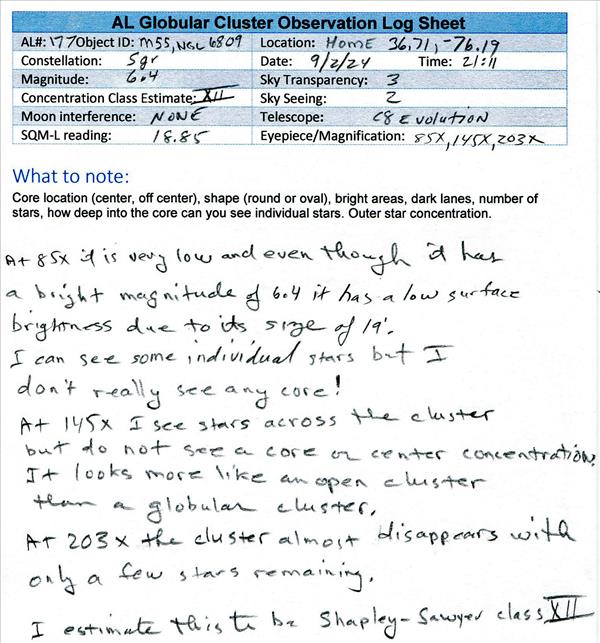 AL Globular Cluster Observation Log Sheet
AL#: 177 Object ID: M55, NGC 6809 Location: Home 36.71, -76.19
Constellation: Sgr Date: 9/2/24 Time: 21:11
Magnitude: 6.4 Sky Transparency: 3
Concentration Class Estimate: XII Sky Seeing: 2
Moon interference: NONE Telescope: C8 Evolution
SQM-L reading: 18.85 Eyepiece/Magnification: 85X, 145X, 203X
What to note:
Core location (center, off center), shape (round or oval), bright areas, dark lanes, number of
stars, how deep into the core can you see individual stars. Outer star concentration.
At 85X it is very low and even though it has
a bright magnitude of 6.4 it has a low surface
brightness due to its size of 19'.
I can see some individual stars but I
don't really see any core!
At 145X I see stars across the cluster
but do not see a core or center concentration.
It looks more like an open cluster
than a globular cluster.
At 203X the cluster almost disappears with
only a few stars remaining.
I estimate this to be Shapley-Sawyer class XII